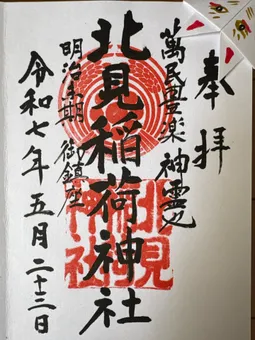 奉拝
萬民豊楽神霊
北見稲荷神社
明治末期 御鎮座
令和七年五月二十三日
北見
神社